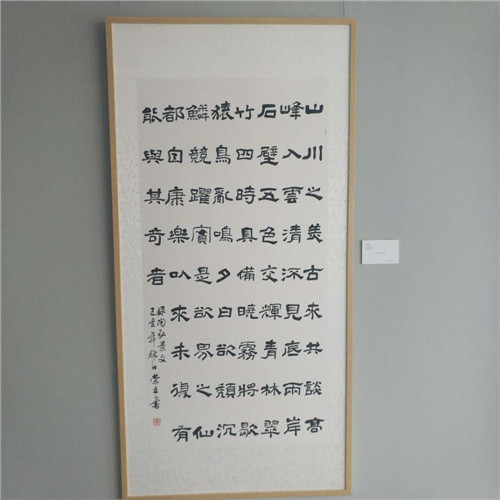 山川之美古來共談高
峰入雲清流見底兩岸
石壁五色交輝青林翠
竹四時具備曉霧將歇
猿鳥亂鳴夕日欲頹沉
鱗競躍實是欲界之仙
都自康樂以來未復有
能與其奇者
錄陶弘景文
己亥年秋日書